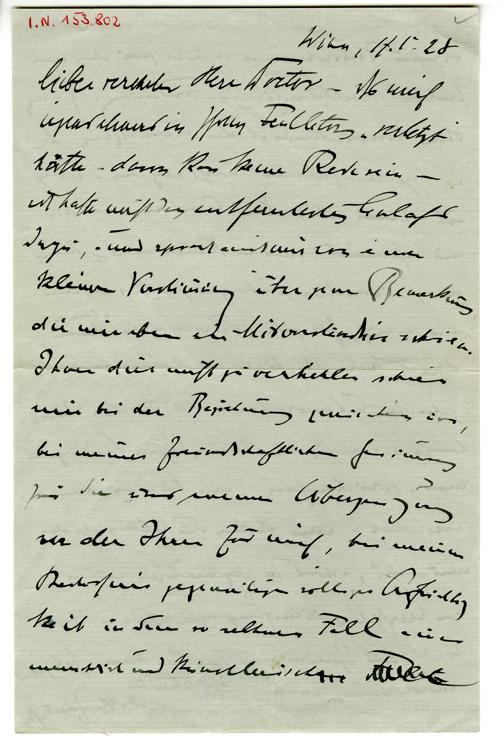 I.N. 153.802
Wien, 17.5.28
lieber verehrter Herr Doctor – dß mich
irgend etwas in Ihrem Feuilleton „verletzt
hätte – davon kann keine Rede sein –
ich hatte nicht den entferntesten Anlaß
dazu, und sprach einer
kleinen Verstimmung über jene Bemerkung,
die mir eben ein Misverständnis schien.
Ihnen dies nicht zu verhehlen schien
mir bei der Beziehung zwischen uns,
bei meiner freundschaftlichen Gesinnung
für Sie und meiner Überzeugung
von der Ihren für mich, bei meinem
Bedürfnis gegenseitiger völliger Aufrichtig
keit in dem so seltnen Fall einer
menschlich und künstlerischen